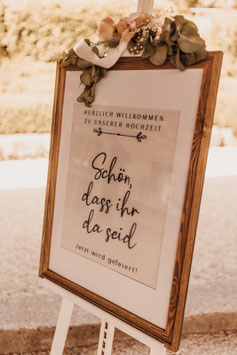 HERZLICH WILLKOMMEN
ZU UNSERER HOCHZEIT
Schön,
dass ihr
da seid
Jetzt wird gefeiert!